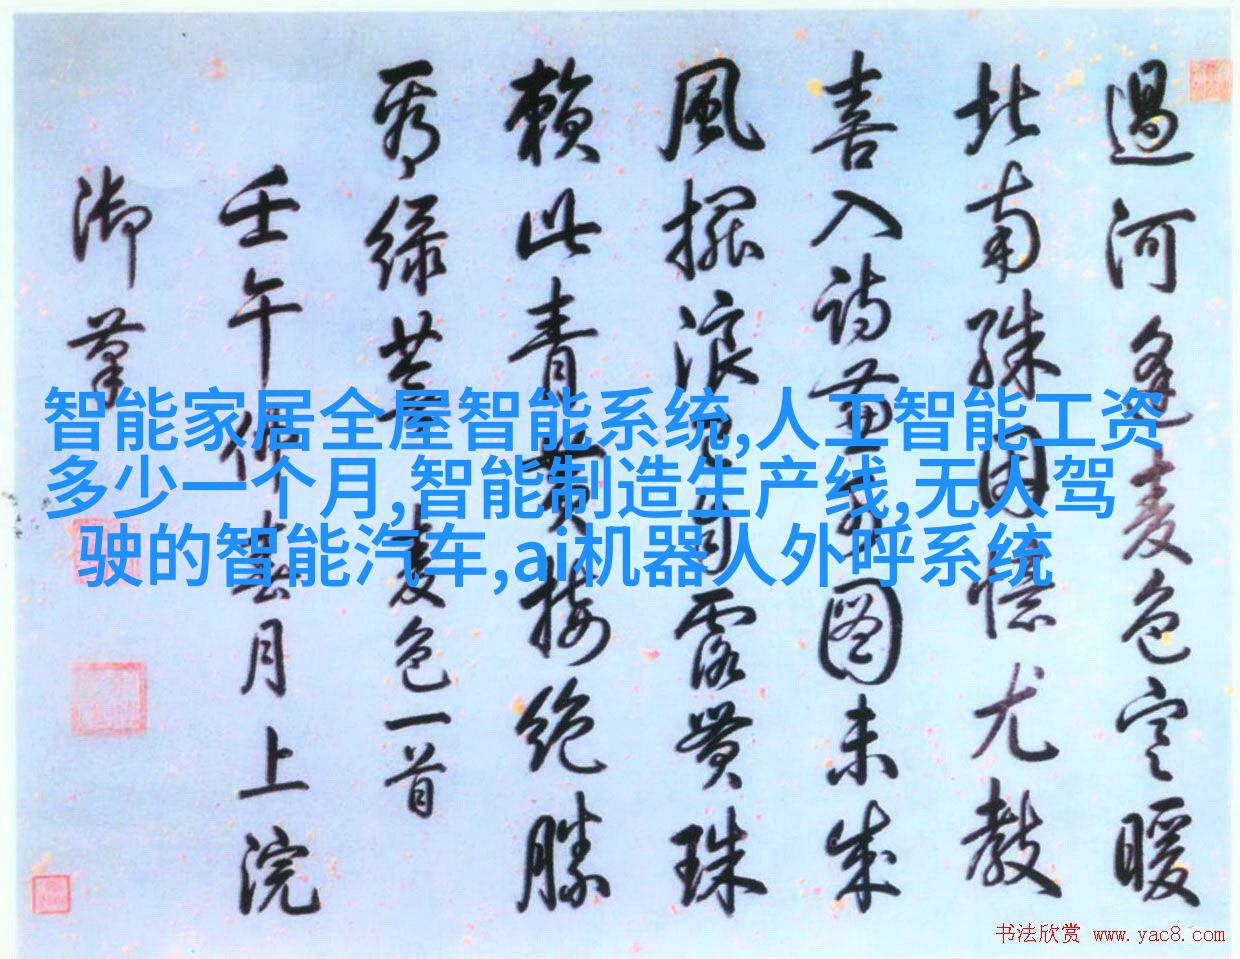 過河逢麥色寒暖
北南殊因憶尤教
喜入詩畫圖未成
風擺浪露貫珠
賴此青黃接絕勝
秀綠蕪麥色一首
壬午仲春月上浣
御筆
智能家居全屋智能系统,人工智能工资
多少一个月,智能制造生产线,无人驾
驶的智能汽车,ai机器人外呼系统
书法欣赏 www.yac8.com